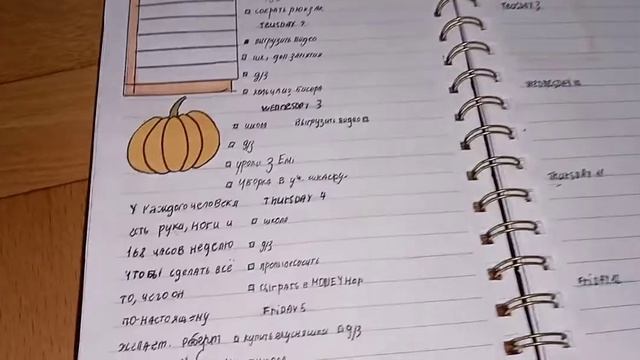 собрать рюкзак
TUESDAY 2
выгрузить видео
шк, доп занятия
д/з
кольцо из бисера
WEDNESDAY 3
школа Выгрузить видео
д/з
уроки з Eni
уборка в уч. шкафу.
THURSDAY 4
школа
д/з
пропылесосить
сыграть в MONEY Hop
FRIDAY 5
купить вкусняшки д/з
У каждого человека
есть рука, ноги и
168 часов неделю
чтобы сделать всё
то, чего он
по-настоящему
желает. Роберт
TUESDAY
WEDNESDAY 10
THURSDAY 11
FRIDAY 12